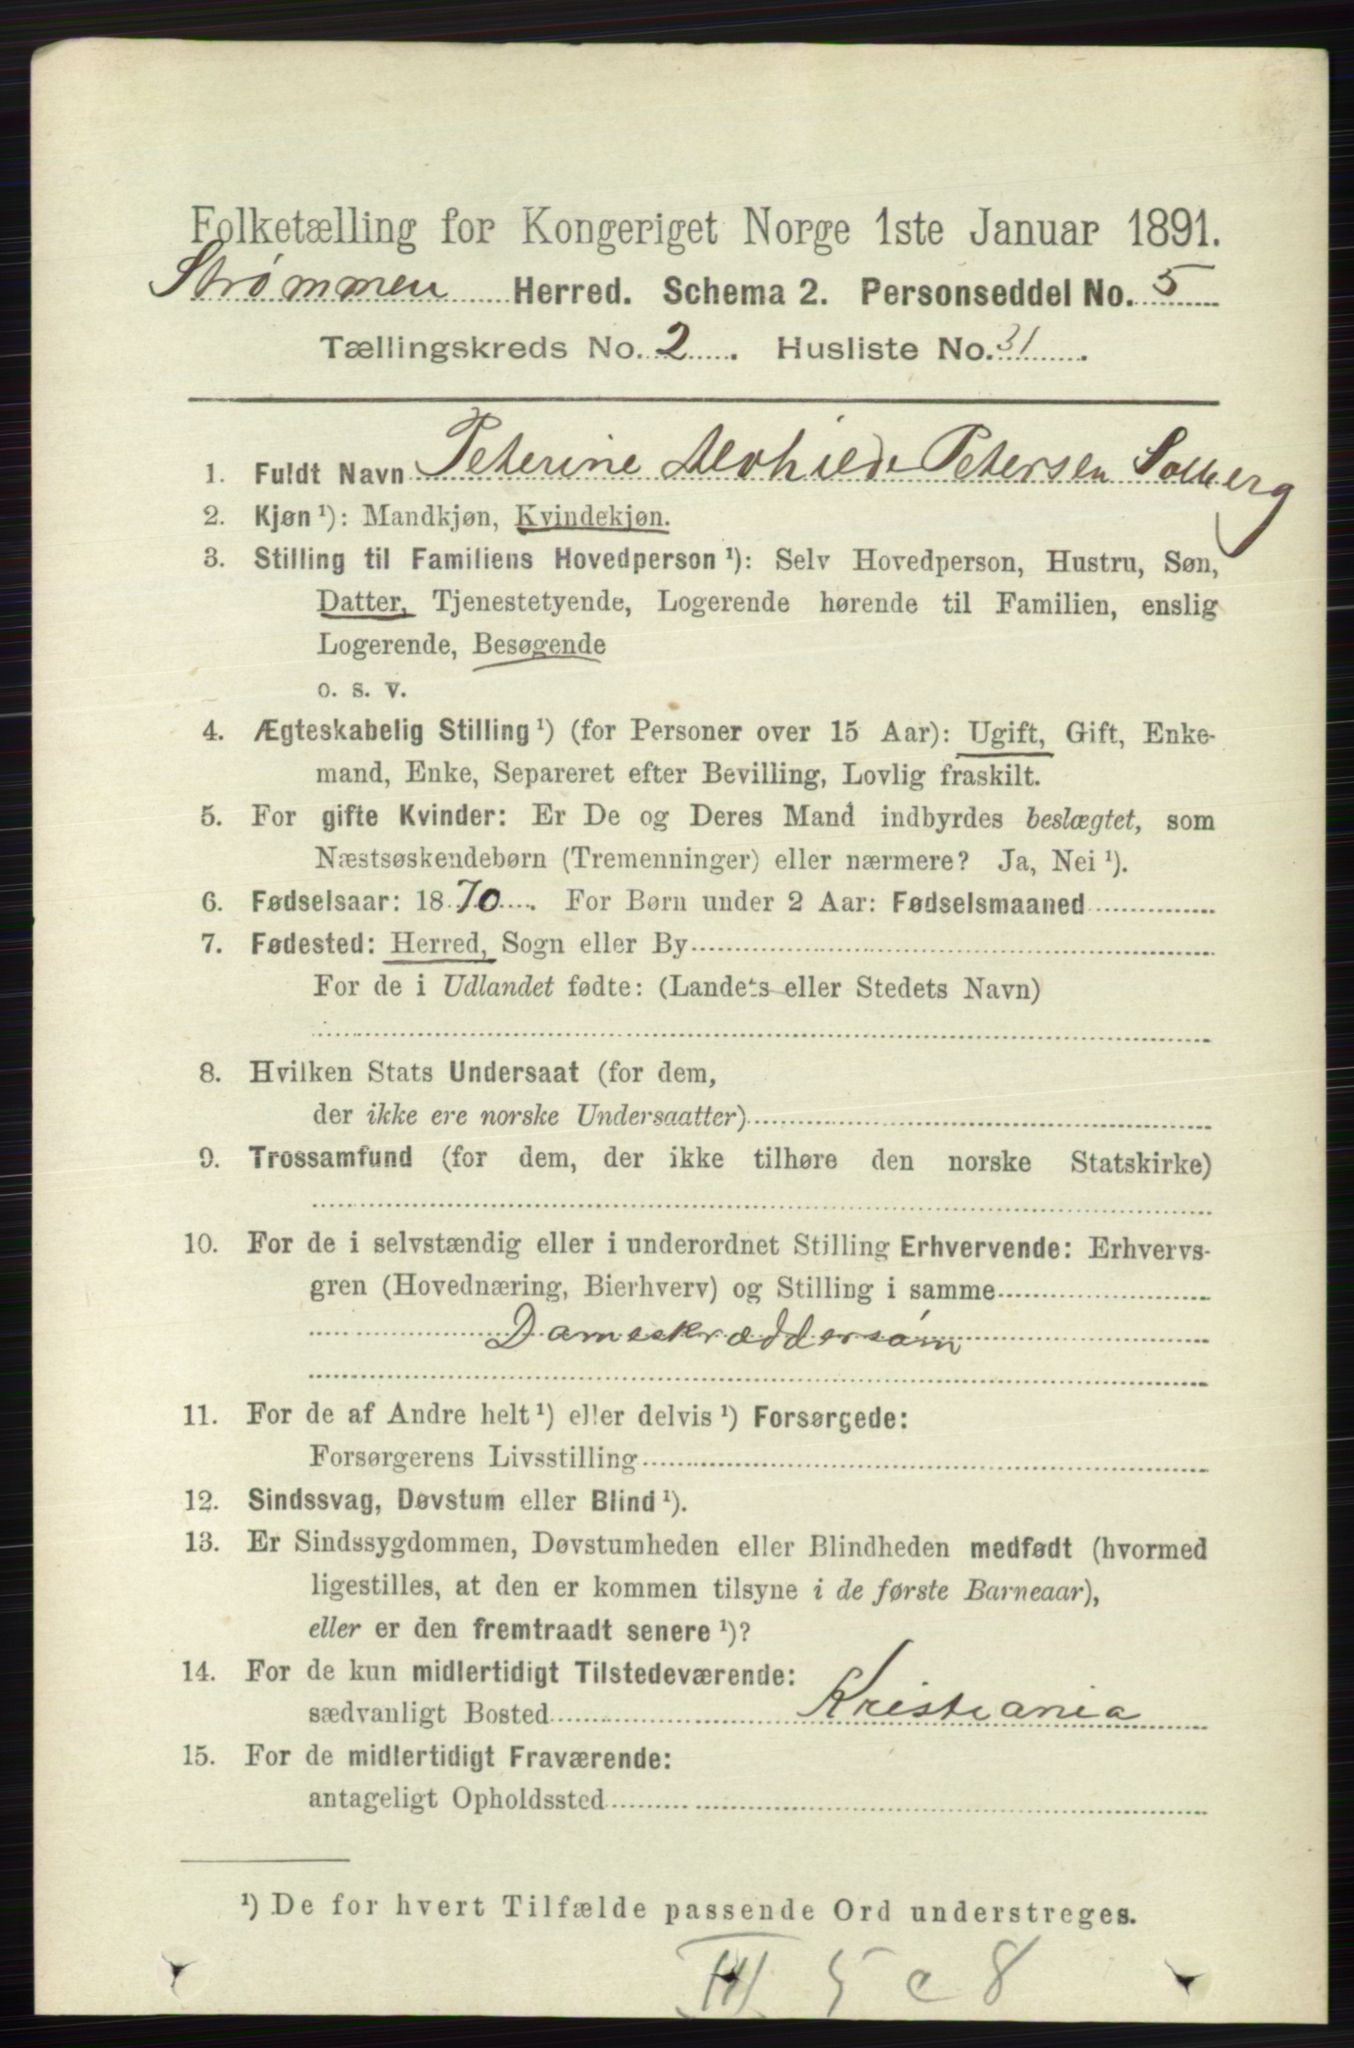 Folketælling for Kongeriget Norge 1ste Januar 1891.
Strømmen Herred. Schema 2. Personseddel No. 5
Tællingskreds No. 2. Husliste No. 31.
1. Fuldt Navn Peterine Petersen Solberg
2. Kjøn ¹): Mandkjøn, Kvindekjøn.
3. Stilling til Familiens Hovedperson ¹): Selv Hovedperson, Hustru, Søn,
Datter, Tjenestetyende, Logerende hørende til Familien, enslig
Logerende, Besøgende
o. s. v.
4. Ægteskabelig Stilling ¹) (for Personer over 15 Aar): Ugift, Gift, Enke-
mand, Enke, Separeret efter Bevilling, Lovlig fraskilt.
5. For gifte Kvinder: Er De og Deres Mand indbyrdes beslægtet, som
Næstsøskendebørn (Tremenninger) eller nærmere? Ja, Nei ¹).
6. Fødselsaar: 1870. For Børn under 2 Aar: Fødselsmaaned
7. Fødested: Herred, Sogn eller By
For de i Udlandet fødte: (Landets eller Stedets Navn)
8. Hvilken Stats Undersaat (for dem,
der ikke ere norske Undersaatter)
9. Trossamfund (for dem, der ikke tilhøre den norske Statskirke)
10. For de i selvstændig eller i underordnet Stilling Erhvervende: Erhvervs-
gren (Hovednæring, Bierhverv) og Stilling i samme
Dameskræddersøm
11. For de af Andre helt ¹) eller delvis ¹) Forsørgede:
Forsørgerens Livsstilling
12. Sindssvag, Døvstum eller Blind ¹).
13. Er Sindssygdommen, Døvstumheden eller Blindheden medfødt (hvormed
ligestilles, at den er kommen tilsyne i de første Barneaar),
eller er den fremtraadt senere ¹)?
14. For de kun midlertidigt Tilstedeværende:
sædvanligt Bosted Kristiania
15. For de midlertidigt Fraværende:
antageligt Opholdssted
¹) De for hvert Tilfælde passende Ord understreges.
5 c 8